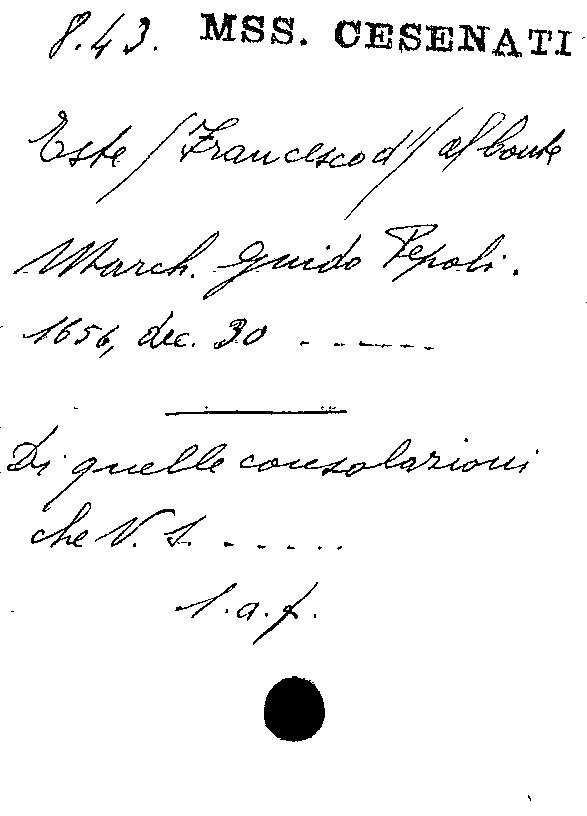 8.43. MSS. CESENATI
Este (Francesco d') al Conte
March. Guido Pepoli.
1656, dec. 30 - - - - - -
Di quelle consolazioni
che V. S. - - - - -
l. a. f.